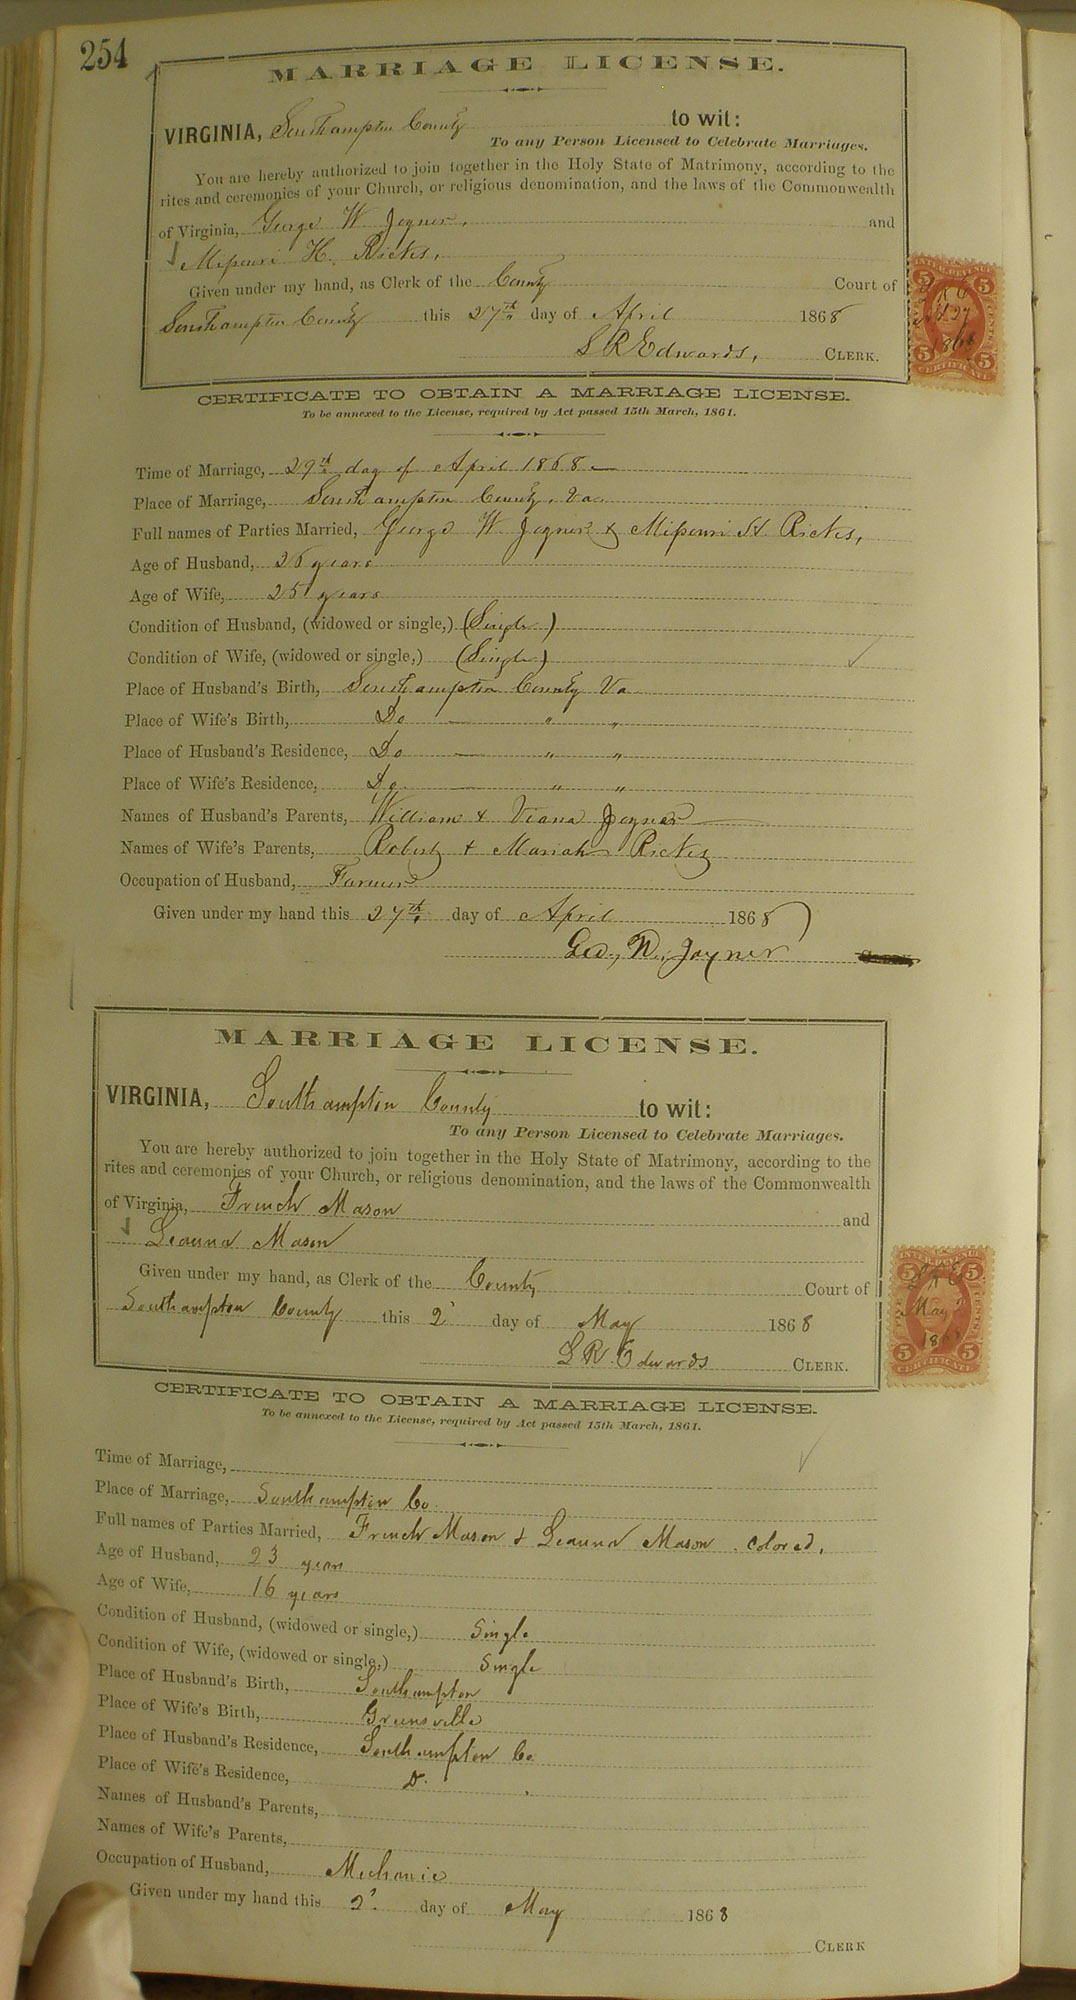 254
MARRIAGE LICENSE.
VIRGINIA, Southampton County to wit:
To any Person Licensed to Celebrate Marriages.
You are hereby authorized to join together in the Holy State of Matrimony, according to the
rites and ceremonies of your Church, or religious denomination, and the laws of the Commonwealth
of Virginia, George W Joyner, and
Missouri H. Ricks,
Given under my hand, as Clerk of the County Court of
Southampton County this 27th day of April 1868
L R Edwards, CLERK.
INTER. REVENUE
5 5
L R E
Apl 27
1868
5 5
CERTIFICATE
CERTIFICATE TO OBTAIN A MARRIAGE LICENSE.
To be annexed to the License, required by Act passed 15th March, 1861.
Time of Marriage, 29th day of April 1868
Place of Marriage, Southampton County, Va.
Full names of Parties Married, George W Joyner & Missouri H. Ricks,
Age of Husband, 26 years
Age of Wife, 25 years
Condition of Husband, (widowed or single,) (Single)
Condition of Wife, (widowed or single,) (Single)
Place of Husband's Birth, Southampton County Va
Place of Wife's Birth, Do — " "
Place of Husband's Residence, Do — " "
Place of Wife's Residence, Do — " "
Names of Husband's Parents, William & Viana Joyner
Names of Wife's Parents, Robert & Mariah Ricks
Occupation of Husband, Farmer
Given under my hand this 27th day of April 1868
Geo, W, Joyner
MARRIAGE LICENSE.
VIRGINIA, Southampton County to wit:
To any Person Licensed to Celebrate Marriages.
You are hereby authorized to join together in the Holy State of Matrimony, according to the
rites and ceremonies of your Church, or religious denomination, and the laws of the Commonwealth
of Virginia, French Mason and
Leanna Mason
Given under my hand, as Clerk of the County Court of
Southampton County this 2' day of May 1868
L R. Edwards CLERK.
INTER. REVENUE
5 5
L R E
May 2
1868
5 5
CERTIFICATE
CERTIFICATE TO OBTAIN A MARRIAGE LICENSE.
To be annexed to the License, required by Act passed 15th March, 1861.
Time of Marriage,
Place of Marriage, Southampton Co.
Full names of Parties Married, French Mason & Leanna Mason. Colored.
Age of Husband, 23 years
Age of Wife, 16 years
Condition of Husband, (widowed or single,) Single
Condition of Wife, (widowed or single,) Single
Place of Husband's Birth, Southampton
Place of Wife's Birth, Greensville
Place of Husband's Residence, Southampton Co
Place of Wife's Residence, Do.
Names of Husband's Parents,
Names of Wife's Parents,
Occupation of Husband, Mechanic
Given under my hand this 2'. day of May 1868
CLERK